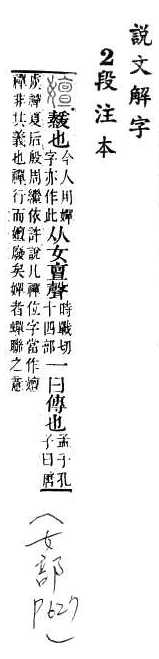 說文解字
2段注本
嬗 也今人用嬋字亦作此从女亶聲時戰切十四部一曰傳也孟子孔子曰唐
虞禪夏后殷周繼依許說凡禪位字當作嬗
禪非其義也禪行而嬗廢矣嬋者蟬聯之意
(女部 P627)